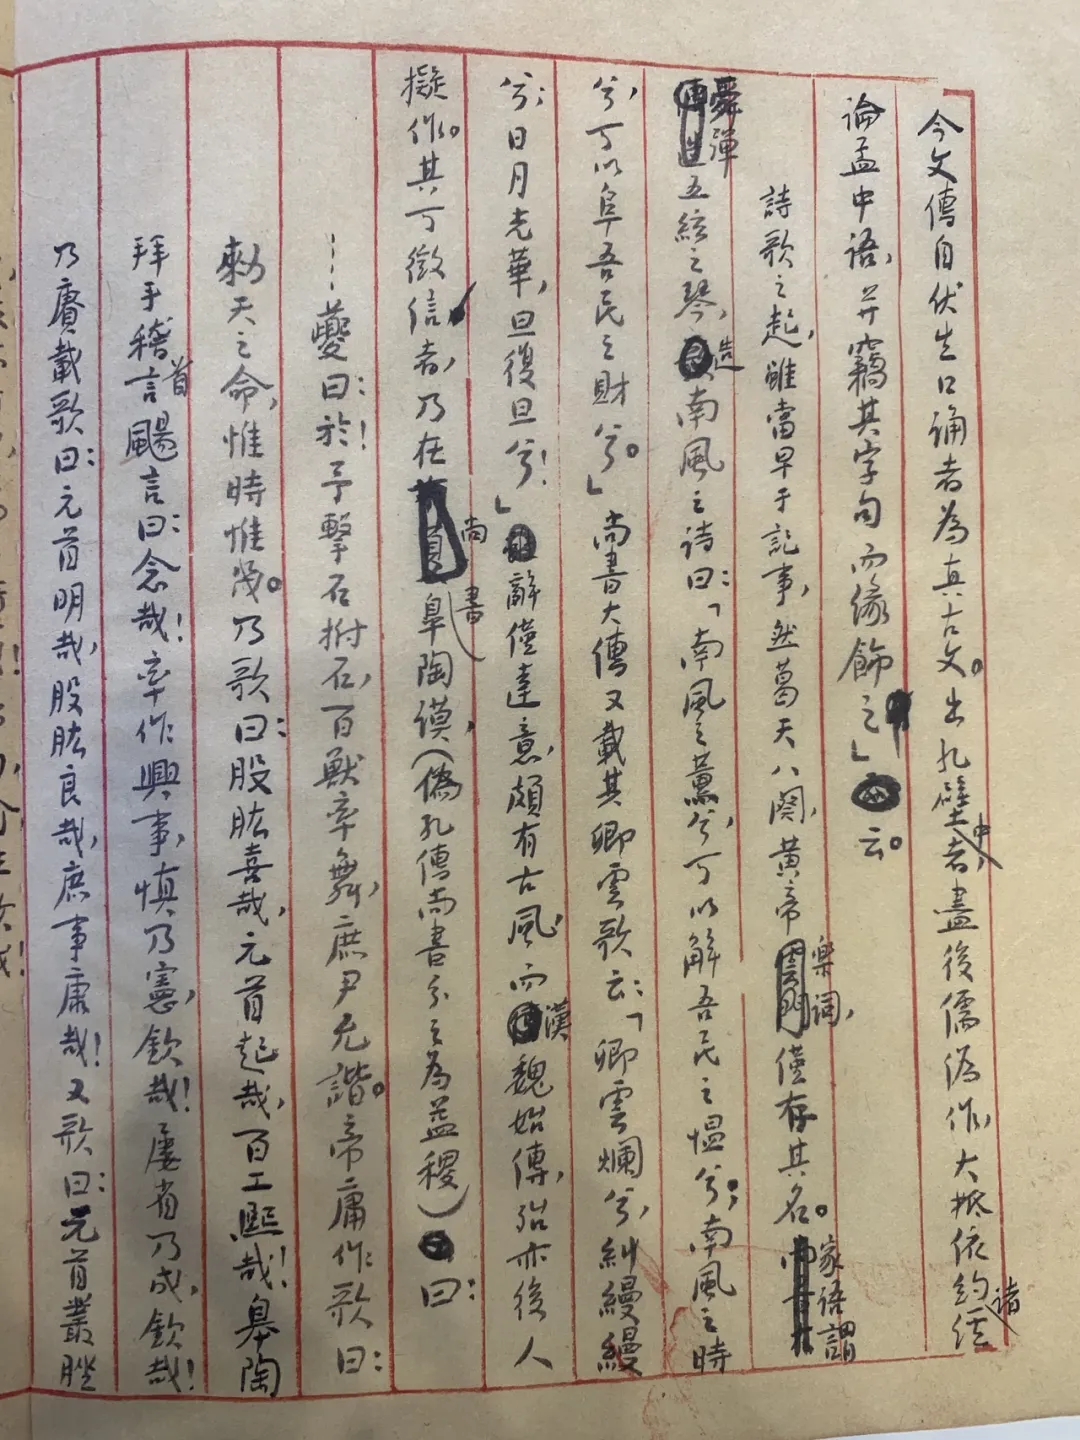 今文傳自伏生口誦者為真古文。出孔壁中者，盡後儒偽作，大抵依約諸経
論孟中语，并竊其字句而緣飾之」云。
詩歌之起，雖當早于記事，然葛天八闋，黃帝樂词，僅存其名。家语謂
舜彈五絃之琴，造南風之诗曰：「南風之薰兮，可以解吾民之愠兮；南風之時
兮，可以阜吾民之財兮。」尚書大傳又載其卿雲歌云：「卿雲爛兮，糾縵縵
兮；日月光華，旦復旦兮！」辭僅達意，頗有古風，而漢魏始傳，殆亦後人
擬作。其可徵信者，乃在尚書皐陶謨，（偽孔傳尚書分之為益稷）曰：
……夔曰：於！予擊石拊石，百獸率舞，庶尹允諧。帝庸作歌曰：
勑天之命，惟時惟幾。乃歌曰：股肱喜哉，元首起哉，百工熙哉！皋陶
拜手稽首颺言曰：念哉！率作興事，慎乃憲，欽哉！屢省乃成，欽哉！
乃賡載歌曰：元首明哉，股肱良哉，庶事康哉！又歌曰：元首叢脞